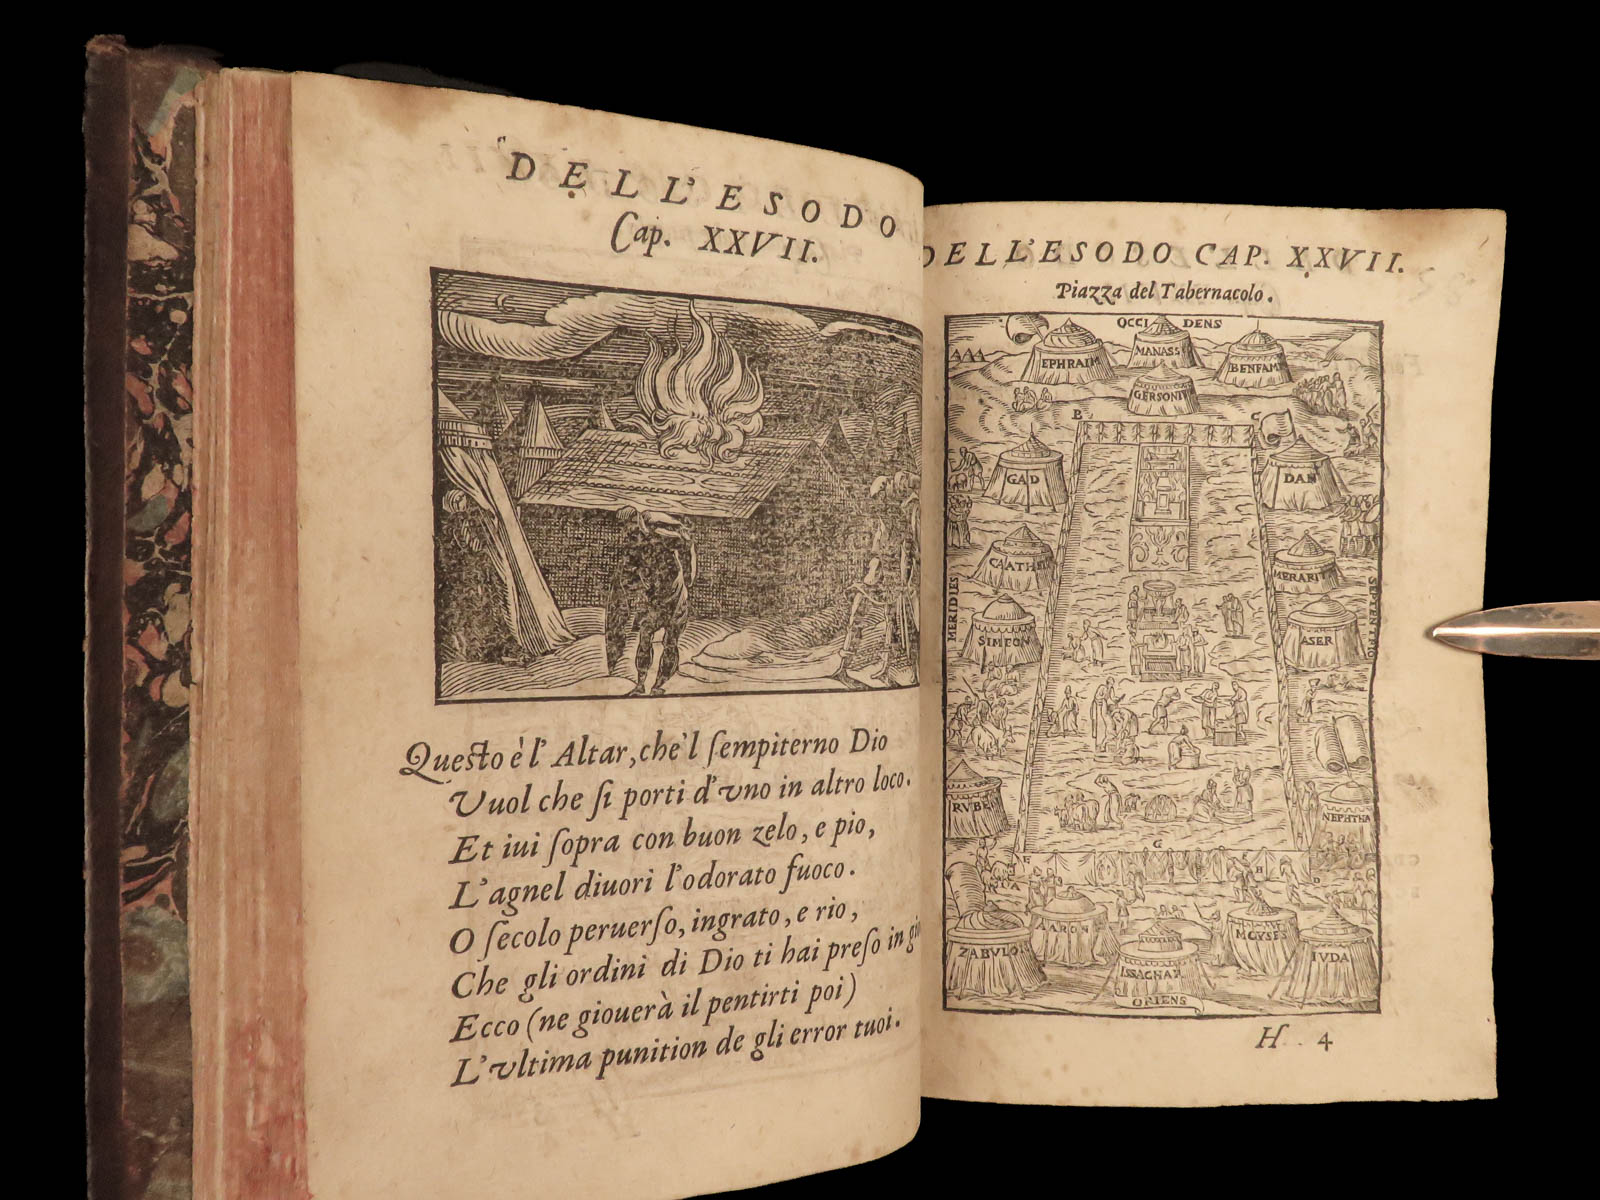 DELL'ESODO
Cap. XXVII.
Questo è l' Altar, che'l ſempiterno Dio
Vuol che ſi porti d'vno in altro loco.
Et iui ſopra con buon zelo, e pio,
L'agnel diuori l'odorato fuoco.
O ſecolo peruerſo, ingrato, e rio,
Che gli ordini di Dio ti hai preſo in
Ecco (ne giouerà il pentirti poi)
L'vltima punition de gli error tuoi.
DELL'ESODO CAP. XXVII.
Piazza del Tabernacolo.
OCCIDENS
EPHRAIM
MANASS
BENFAM
GERSONI
B
GAD
DAN
CAATHE
MERARI
MERIDIES
SEPTENTRIO
SIMEON
ASER
RVBE
NEPHTHA
G
AARON
MOYSES
ZABVLO
ISSACHAR
IVDA
ORIENS
H 4